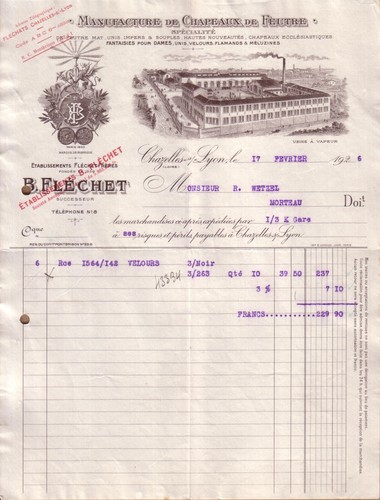 Manufacture de Chapeaux de Feutre
SPÉCIALITÉ
DE FEUTRE MAT, UNIS, IMPERS & SOUPLES, HAUTES NOUVEAUTÉS, CHAPEAUX ECCLÉSIASTIQUES
FANTAISIES POUR DAMES, UNIS, VELOURS, FLAMANDS & MÉLUZINES
Adresse Télégraphique
FLÉCHETS CHAZELLES-s/-LYON
USINE A VAPEUR
MARQUE DE FABRIQUE
ÉTABLISSEMENTS FLÉCHET FRÈRES
ÉTABLISSEMENTS B. FLÉCHET
B. FLÉCHET
SUCCESSEUR
TÉLÉPHONE N°8
Chazelles s/ Lyon, le 17 FEVRIER 1926
(LOIRE)
Monsieur R. WETZEL
MORTEAU Doit
les marchandises ci-après expédiées par 1/3 K Gare
à ses risques et périls payables à Chazelles s/ Lyon
6 Ros 1544/142 VELOURS 3/Noir
3/263 Qté 10 39 50 237
13294
3 % 7 10
FRANCS: 229 90